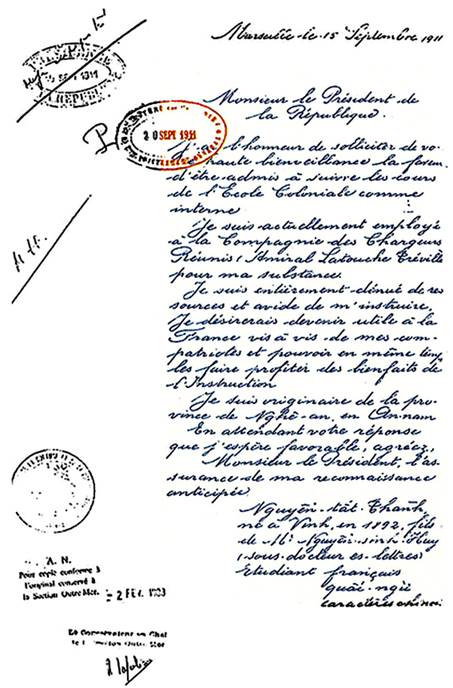 Marseille le 15 Septembre 1911
Monsieur le Président de
la République.
20 SEPT 1911
J'ai l'honneur de solliciter de vo-
haute bienveillance la faveur
d'être admis à suivre les cours
de l'Ecole Coloniale comme
interne
Je suis actuellement employé
à la Compagnie des Chargeurs
Réunis (Amiral Latouche Tréville
pour ma substance.
Je suis entièrement dénué de res
sources et avide de m'instruire.
Je désirerais devenir utile à la
France vis à vis de mes com-
patriotes et pouvoir en même temps
les faire profiter des bienfaits de
l'Instruction
Je suis originaire de la pro-
vince de Nghê-an, en Annam
En attendant votre réponse
que j'espère favorable, agréez,
Monsieur le Président, l'as-
surance de ma reconnaissance
anticipée
Nguyên-tât-Thanh,
né à Vinh, en 1892, fils
de Mr Nguyên-sinh-Huy
(sous-docteur ès-lettres)
Etudiant français
quôi-ngü
caractères chinois
A. N.
Pour copie conforme à
l'original conservé à
la Section Outre Mer.
- 2 FEV. 1983
Le Conservateur en Chef